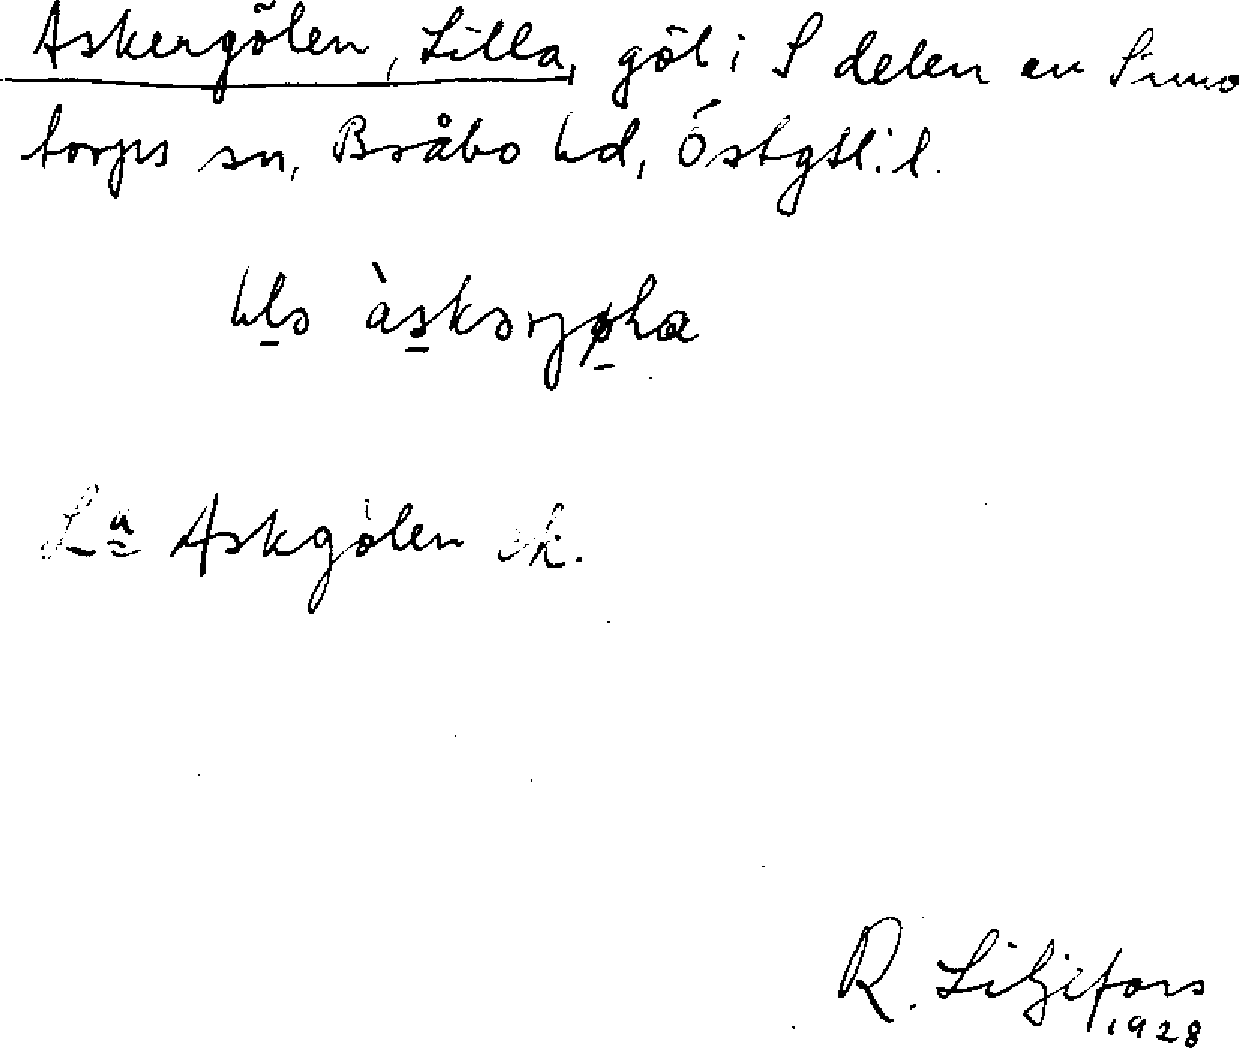 Askergölen, Lilla, göl i S delen av Simo
torps sn, Bråbo hd, Östgtl:l.
Lª Askgölen ek.
R. Liljefors
1928